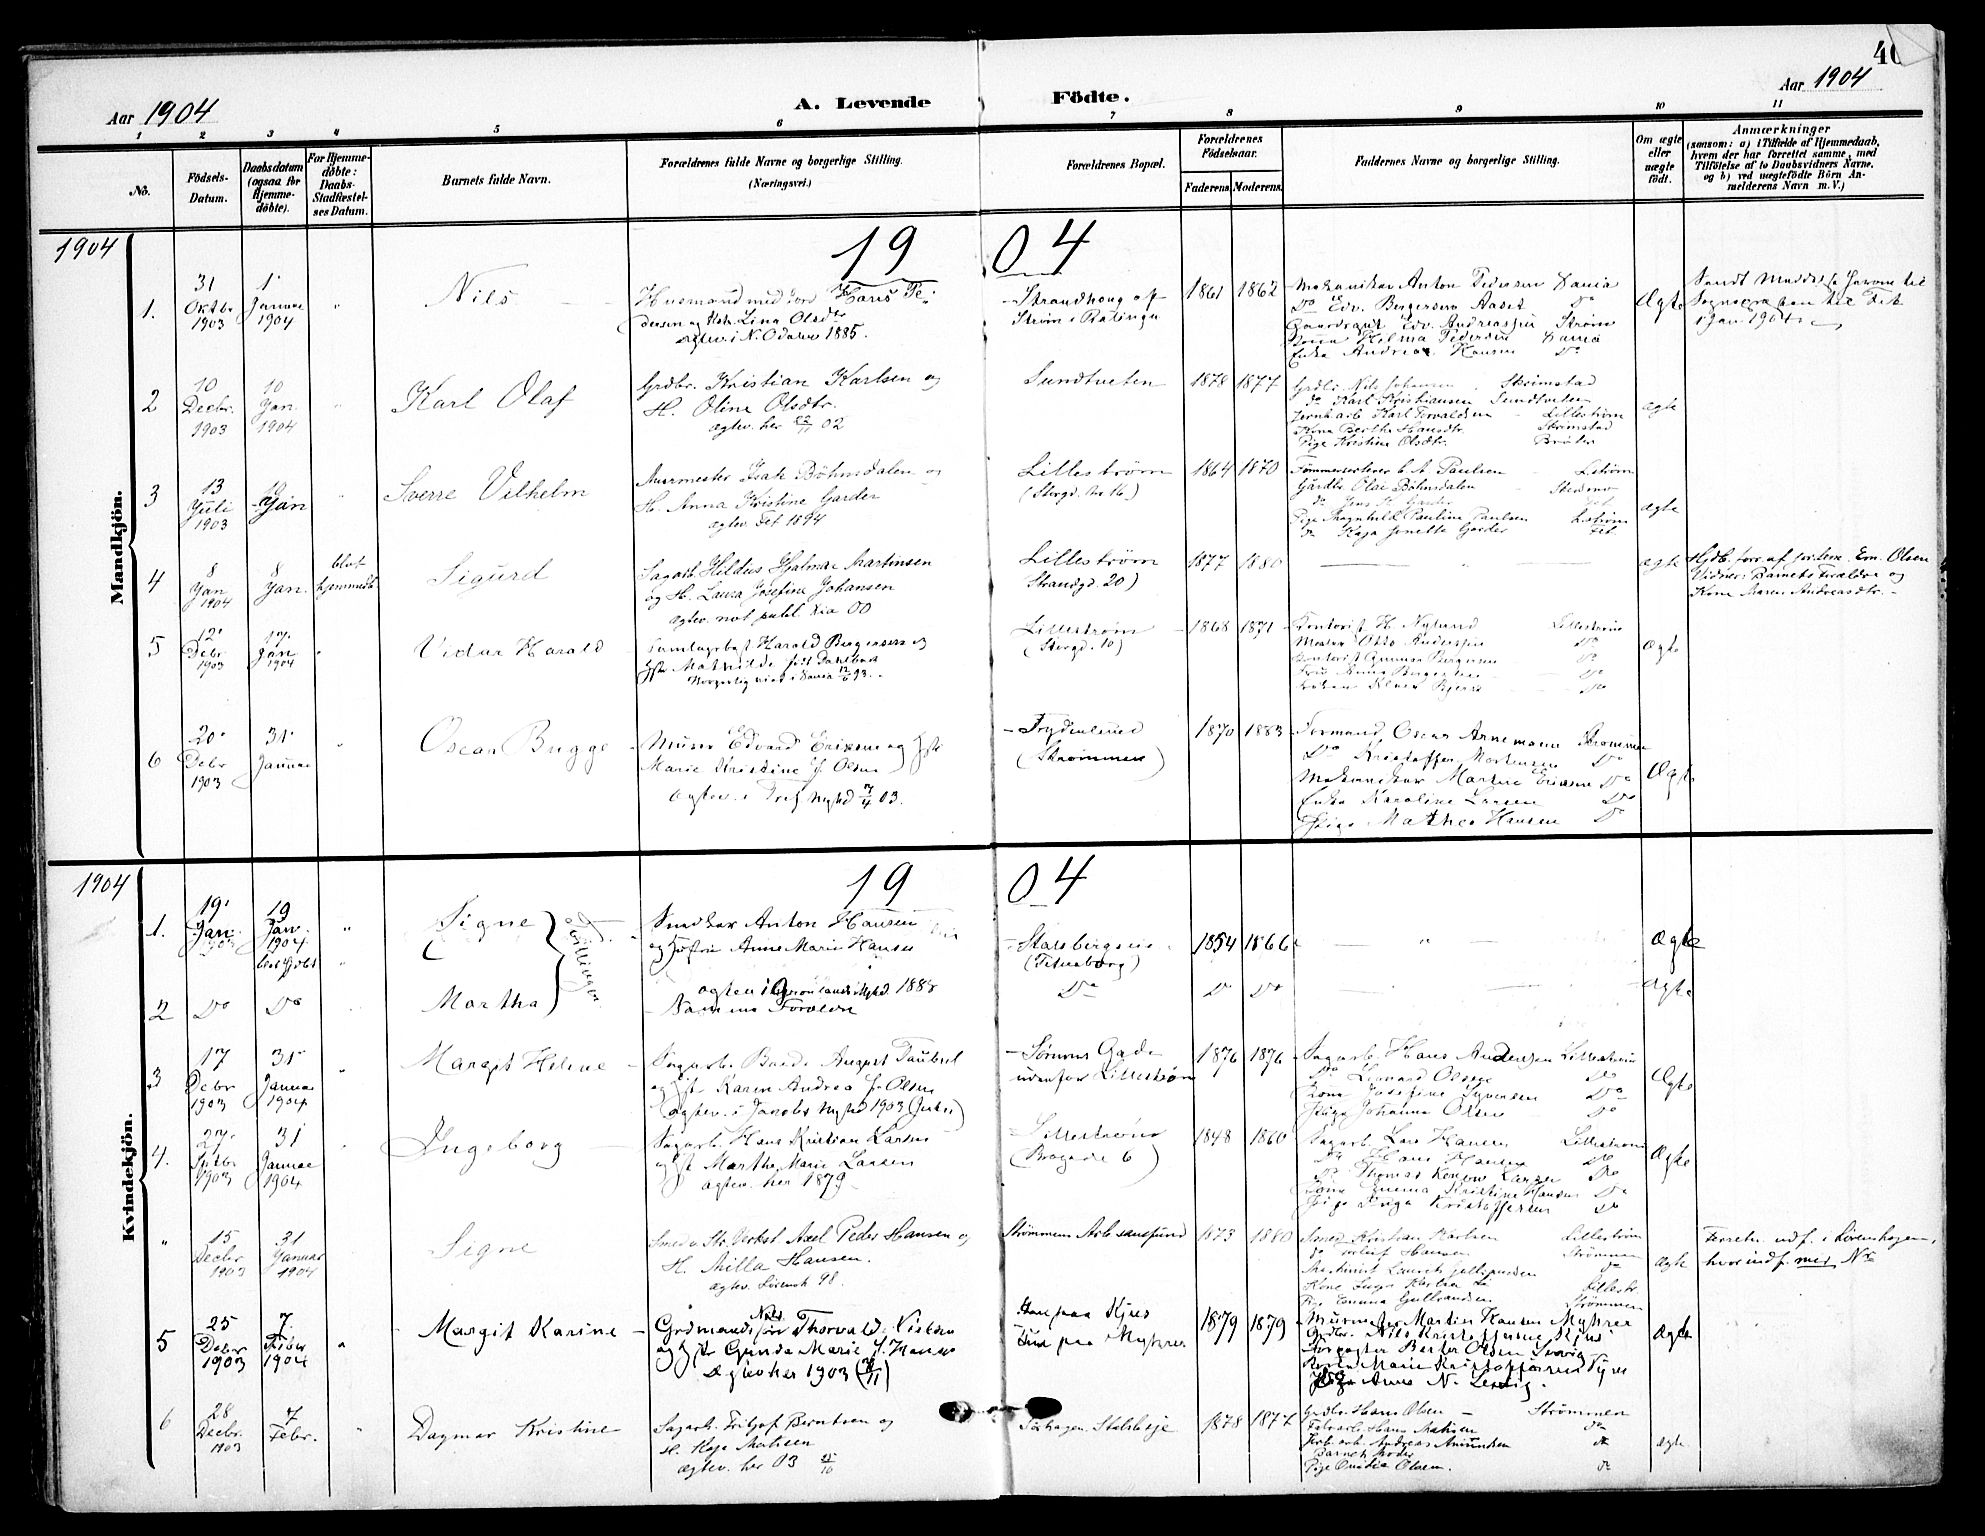 40
Aar 1904
A. Levende Födte.
Aar 1904
1 2 3 4 5 6 7 8 9 10 11
No.
Födsels-Datum.
Daabsdatum (ogsaa for Hjemme-döbte).
For Hjemme-döbte: Daabs-Stadfestel-ses Datum.
Barnets fulde Navn.
Forældrenes fulde Navne og borgerlige Stilling.
(Næringsvei.)
Forældrenes Bopæl.
Forældrenes Födselsaar.
Faderens. Moderens.
Faddernes Navne og borgerlige Stilling.
Om ægte eller uægte födt.
Anmærkninger
(saasom: a) i Tilfælde af Hjemmedaab, hvem der har forrettet samme, med Tilföielse af to Daabsvidners Navne, og b) ved uægtefödte Börn An-melderens Navn m. V.)
1904
1904
Mandkjön.
1. 31 Oktbr 1903
1 Januar 1904
Nils
Husmand med Jord Hans Pe-
dersen og Hstr. Lina Olsdtr
ægtev. i N. Odalen 1885.
Strandhoug af
Strøm i Rælingen
1861 1862
Mekaniker Anton Pedersen Sania
Do Edv. Bergersen Aaset Do
Gaardbruger Edv. Andreassen Strøm
Kona Helma Pedersen Sania
Enke Andrea Hansen Do
Ægte
Sendt Meddelelse herom til
Sognepræsten til Fet
1 Jan. 1904
2 10 Decbr. 1903
10 Jan. 1904
Karl Olaf
Grdbr. Kristian Karlsen og
H. Oline Olsdtr.
ægtev. her 23/11 02
Sundtveten
1878 1877
Grdbr. Nils Johansen Skrimstad
do Karl Kristiansen Sundtveten
Jernb.arb. Karl Torvaldsen Lilleström
Kona Berthe Hansdtr. Skrimstad
Pige Kristine Olsdtr. Bråten
ægte
3 13 Juli 1903
10 Jan
Sverre Vilhelm
Murmester Isak Böhmsdalen og
H. Anna Kristine Garder
ægtev. Fet 1894
Lilleström
(Storgd. No 16)
1864 1870
Tømmermester C. A. Paulsen Lström
Gårdbr. Olai Böhmsdalen Skedsmo
do Jens H. Garder Fet
Pige Magnhild Pauline Paulsen Lström
do Kaja Jonette Garder Fet
ægte
4 8 Jan 1904
8 Jan.
blot hjemmedöbt
Sigurd
Sagarb. Hildus Hjalmar Martinsen
og H. Laura Josefine Johansen
ægtev. not. publ. Xia 00
Lilleström
(Strandgd. 20)
1877 1880
ægte
Hjdb. forr. af jordem. Em. Olsen
Vidner: Barnets Forældre og
Kone Maren Andreasdtr.
5 12 Debr 1903
17 Jan 1904
Vidar Harald
Samlagsbest. Harald Bergersen og
Hstr. Mathilde født Dahlbak
Borgerlig viet i Xania 12/6 93.
Lilleström
(Storgd. 10)
1868 1871
Kontorist H. Nylund Lilleström
Mester Otto Andersen Do
Kontorist Gunnar Bergersen Do
Fru Anna Bergersen Do
Frøken Klara Bjerke Do
Ægte
6 20 Debr 1903
31 Januar
Oscar Brugge
Murer Edvard Eriksen og Hstr
Marie Kristine f. Olsen
ægtev. i Trefs Mghed 7/4 03.
Frydenlund
(Strømmen)
1870 1883
Formand Oscar Arnemann Strømmen
Do Kristoffer Mortensen Do
Mekaniker Martin Eriksen Do
Enke Karoline Larsen Do
Pige Mathea Hansen Do
Ægte
1904
1904
Kvindekjön.
1. 19 Jan. 1903
19 Jan. 1904 blot hjdöbt
Signe
Tvillinger
Snedker Anton Hansen
og Hustru Anne Marie Hansen
ægtev i Grønlands Mghed 1888
Navnene Forældre
Stalsbergseie
(Feltusborg)
1854 1866
Ægte
2 Do
Do
Martha
Do
Do Do
Ægte
3 17 Debr 1903
31 Januar 1904
Margit Helene
Sagarb. Bard August Taubøl
og Hst Karen Andrea f. Olsen
ægtev. i Jacobs Mghed 1903 (Juli)
Sørums Gade
udenfor Lilleström
1876 1876
Sagarb. Hans Andersen Lilleström
Do Leonard Olsen Do
Kona Josefine Syversen Do
Pige Johanna Olsen Do
Ægte
4. 27 Sptbr 1903
31 Januar 1904
Ingeborg
Sagarb. Hans Kristian Larsen
og Hst Marthe Marie Larsen
ægtev. her 1879
Lilleström
(Brogade 6)
1848 1860
Sagarb. Lars Hansen Lilleström
Do Hans Hansen Do
Do Thomas Kenow Larsen Do
Kona Emma Kristine Hansen Do
Pige Inga Kristoffersen Do
Ægte
" 15 Decbr 1903
31 Januar 1904
Signe
Smed v. Str. Verkst Axel Peder Hansen og
H. Milla Hansen.
ægtev. Sørensh 98.
Strömmens Arb.samfund
1873 1880
Smed Kristian Karlsen Lilleström
do Torleif Hansen Strömmen
Maskinist Lauritz Gulbrandsen do
Kone Inga Karlsen Lillestr.
Pige Emma Gulbrandsen Strömmen
ægte
Forretn. udf. i Lørenskogen,
hvor indf. med No
5 25 Debr 1903
7 Febr 1904
Margit Karine
Grdmandssøn Nils Thorvald Nilsen
og Hstr Gunda Marie f. Hansen
ægtev her 1903 (22/11)
Han paa Kjus
Hun paa Myhrer
1879 1879
Murmester Martin Hansen Myhrer
Grdbr. Nils Kristoffersen Kjus
Forpagter Berter Olsen Leirvig
Kona Marie Kristoffersen Kjus
Pige Anne N. Leirvig.
Ægte
6 28 Decbr. 1903
7 Febr.
Dagmar Kristine
Sagarb. Fritjof Berntsen og
H. Kaja Matisen
ægtev. her 03 25/10
Sörhagen Stalsbeje
1878 1877
Grdbr. Hans Olsen Strömmen
Fabr.arb. Hans Matisen do
Jerb.arb. Andreas Amundsen do
Barnets Moder
Pige Ovidia Olsen. do
ægte